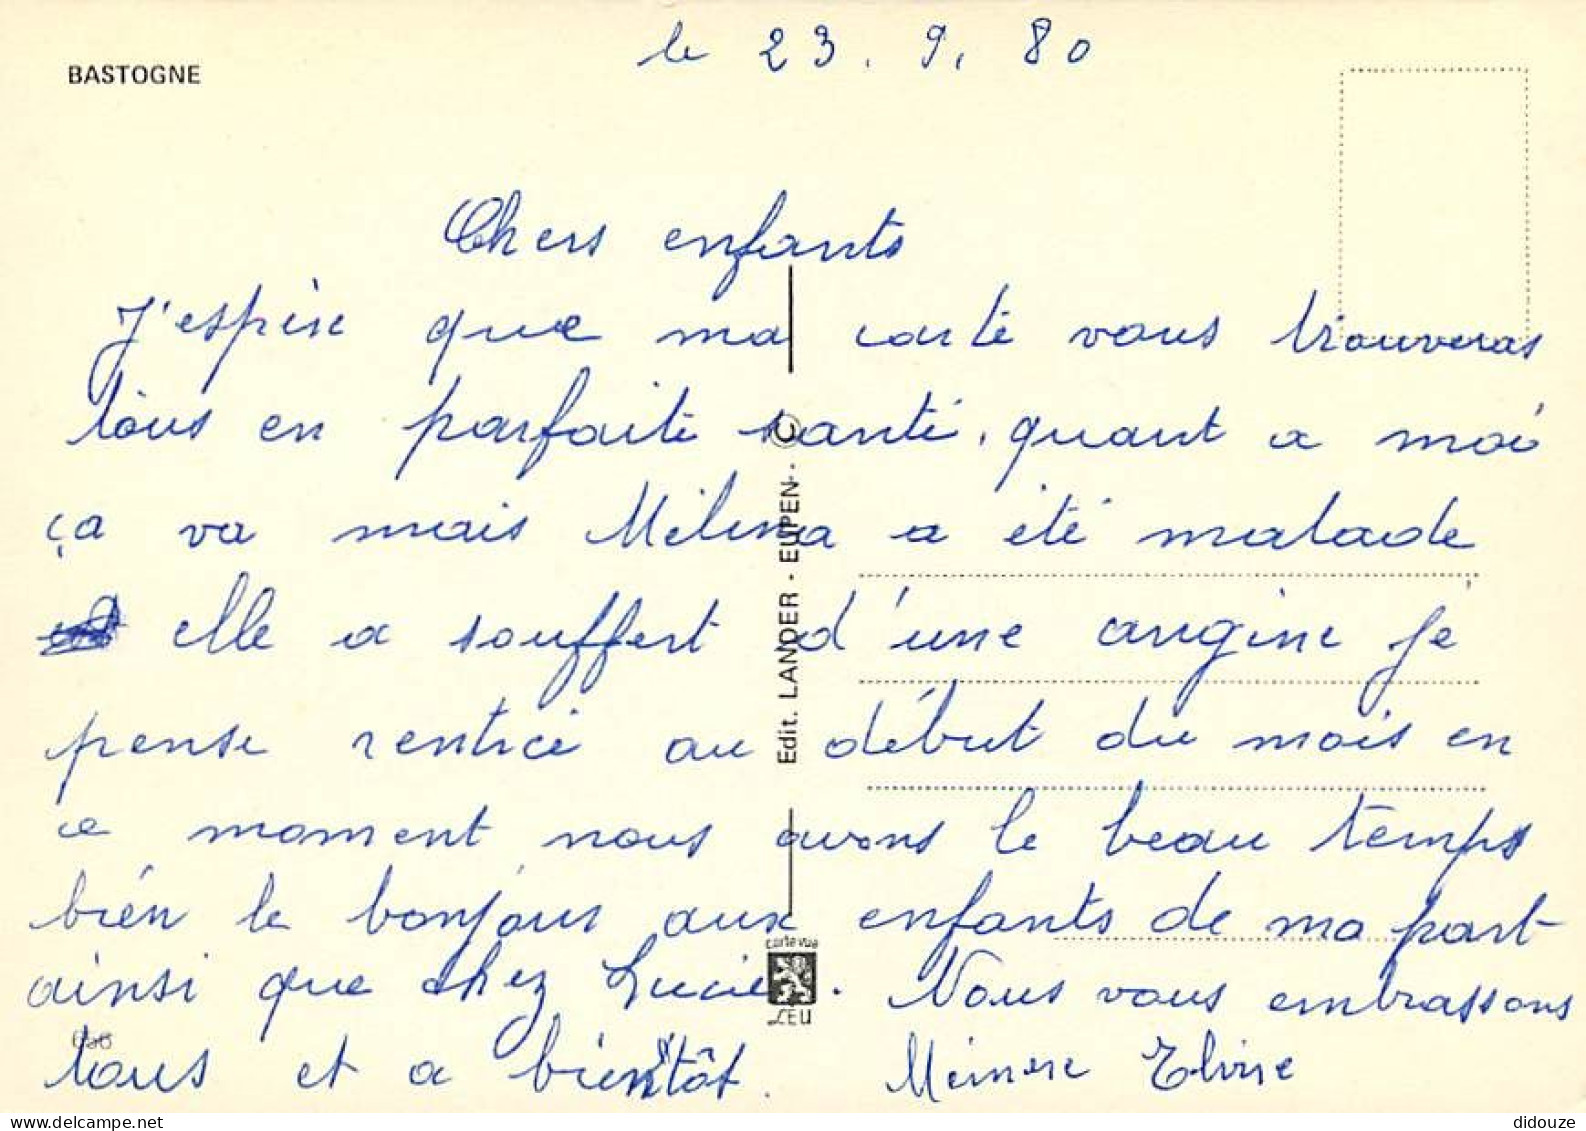 le 23.9.80
BASTOGNE
Chers enfants
J'espère que ma carte vous trouveras
tous en parfaite santé, quant a moi
ça va mais Mélina a été malade
elle a souffert d'une angine je
pense rentrée au début du mois en
ce moment nous avons le beau temps
bien le bonjour aux enfants de ma part
ainsi que chez Lucie. Nous vous embrassons
tous et a bientôt. Elvire
Edit. LANDER - EUPEN - ©
carte vue
CEU
didouze